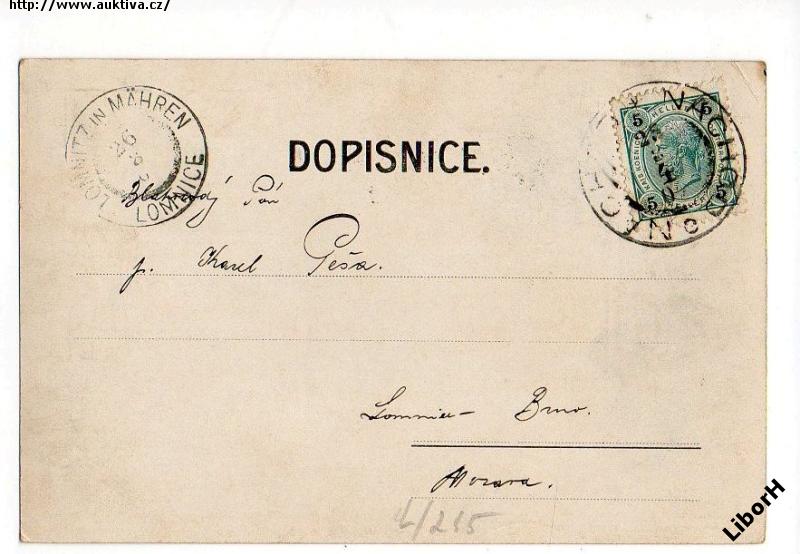 http://www.auktiva.cz/
LOMNITZ IN MÄHREN
LOMNICE
DOPISNICE.
5 5
5 5
NÁCHOD
NACHOD
Blahorodý Pán
p. Karel Peša.
Lomnice - Brno.
Morava.
4/215
LiborH